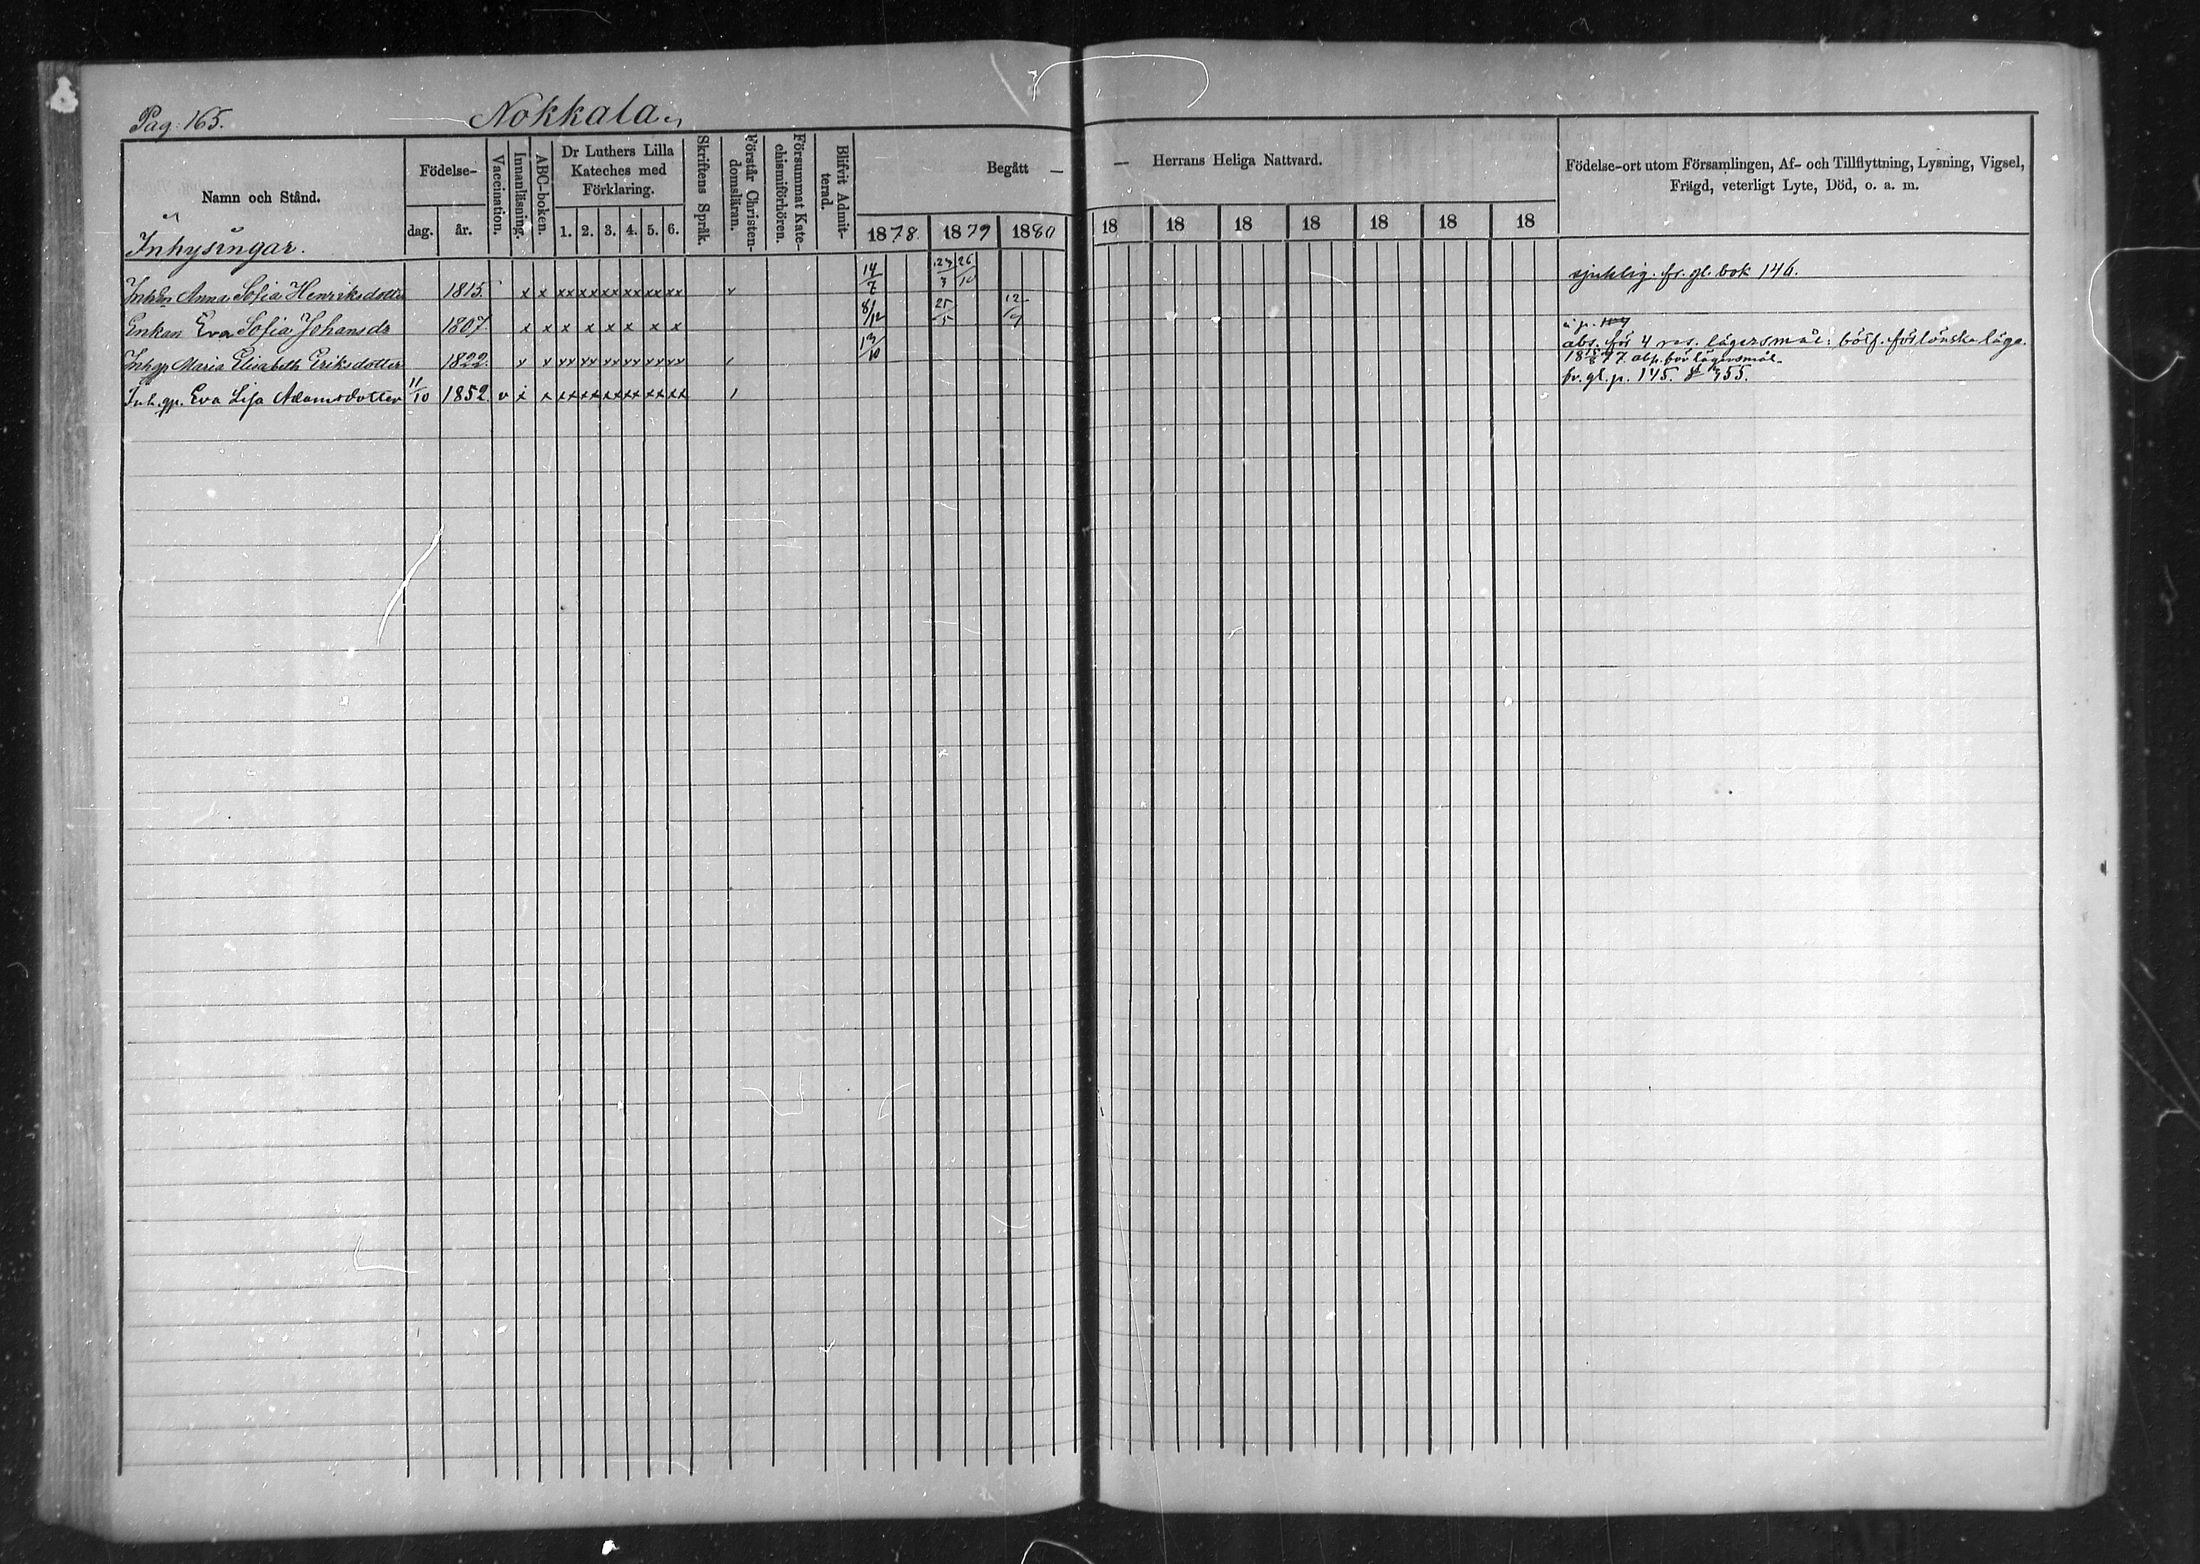 Pag: 165.
Nokkala.
Namn och Stånd.
Födelse-
dag.
år.
Vaccination.
Innanläsning.
ABC-boken.
Dr Luthers Lilla
Kateches med
Förklaring.
1. 2. 3. 4. 5. 6.
Skriftens Språk.
Förstår Christen-
domsläran.
Försummat Kate-
chismiförhören.
Blifvit Admit-
terad.
Begått —
— Herrans Heliga Nattvard.
1878. 1879 1880 18 18 18 18 18 18 18
Födelse-ort utom Församlingen, Af- och Tillflyttning, Lysning, Vigsel,
Frägd, veterligt Lyte, Död, o. a. m.
Inhysingar.
Anna Sofia Henriksdotter 1815. x x xx xx xx xx xx xx 14/7 23/3 26/10 sjuklig. fr. gl. bok 146.
Enkan Eva Sofia Johansdr 1807. x x x x x x x x 8/12 25/5
Inhgp Maria Elisabeth Eriksdotter 1822. 13/10 abs. för 4 res. lägersmål:
1877 abs. för lägersmål.
Inh. gp. Eva Lisa Adamsdotter 11/10 1852. v x x xx xx xx xx xx xx fr. gl. p. 145.